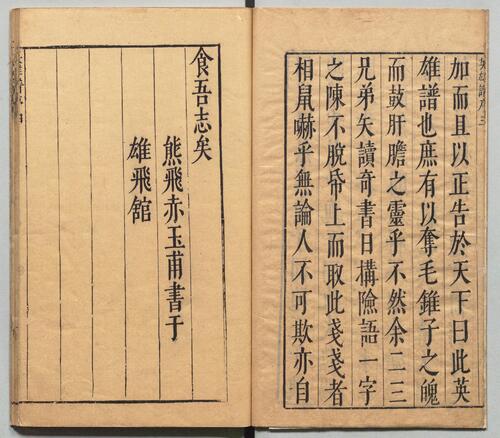 加而且以正告於天下曰此英
雄譜也庶有以奪毛錐子之魄
而鼓肝膽之靈乎不然余二三
兄弟矢讀奇書日搆險語一字
之陳不脫帋上而取此戔戔者
相鼠嚇乎無論人不可欺亦自
食吾志矣
熊飛赤玉甫書于
雄飛館